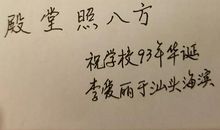 殿堂照八方
祝学校93年华诞
李爱丽于汕头海滨